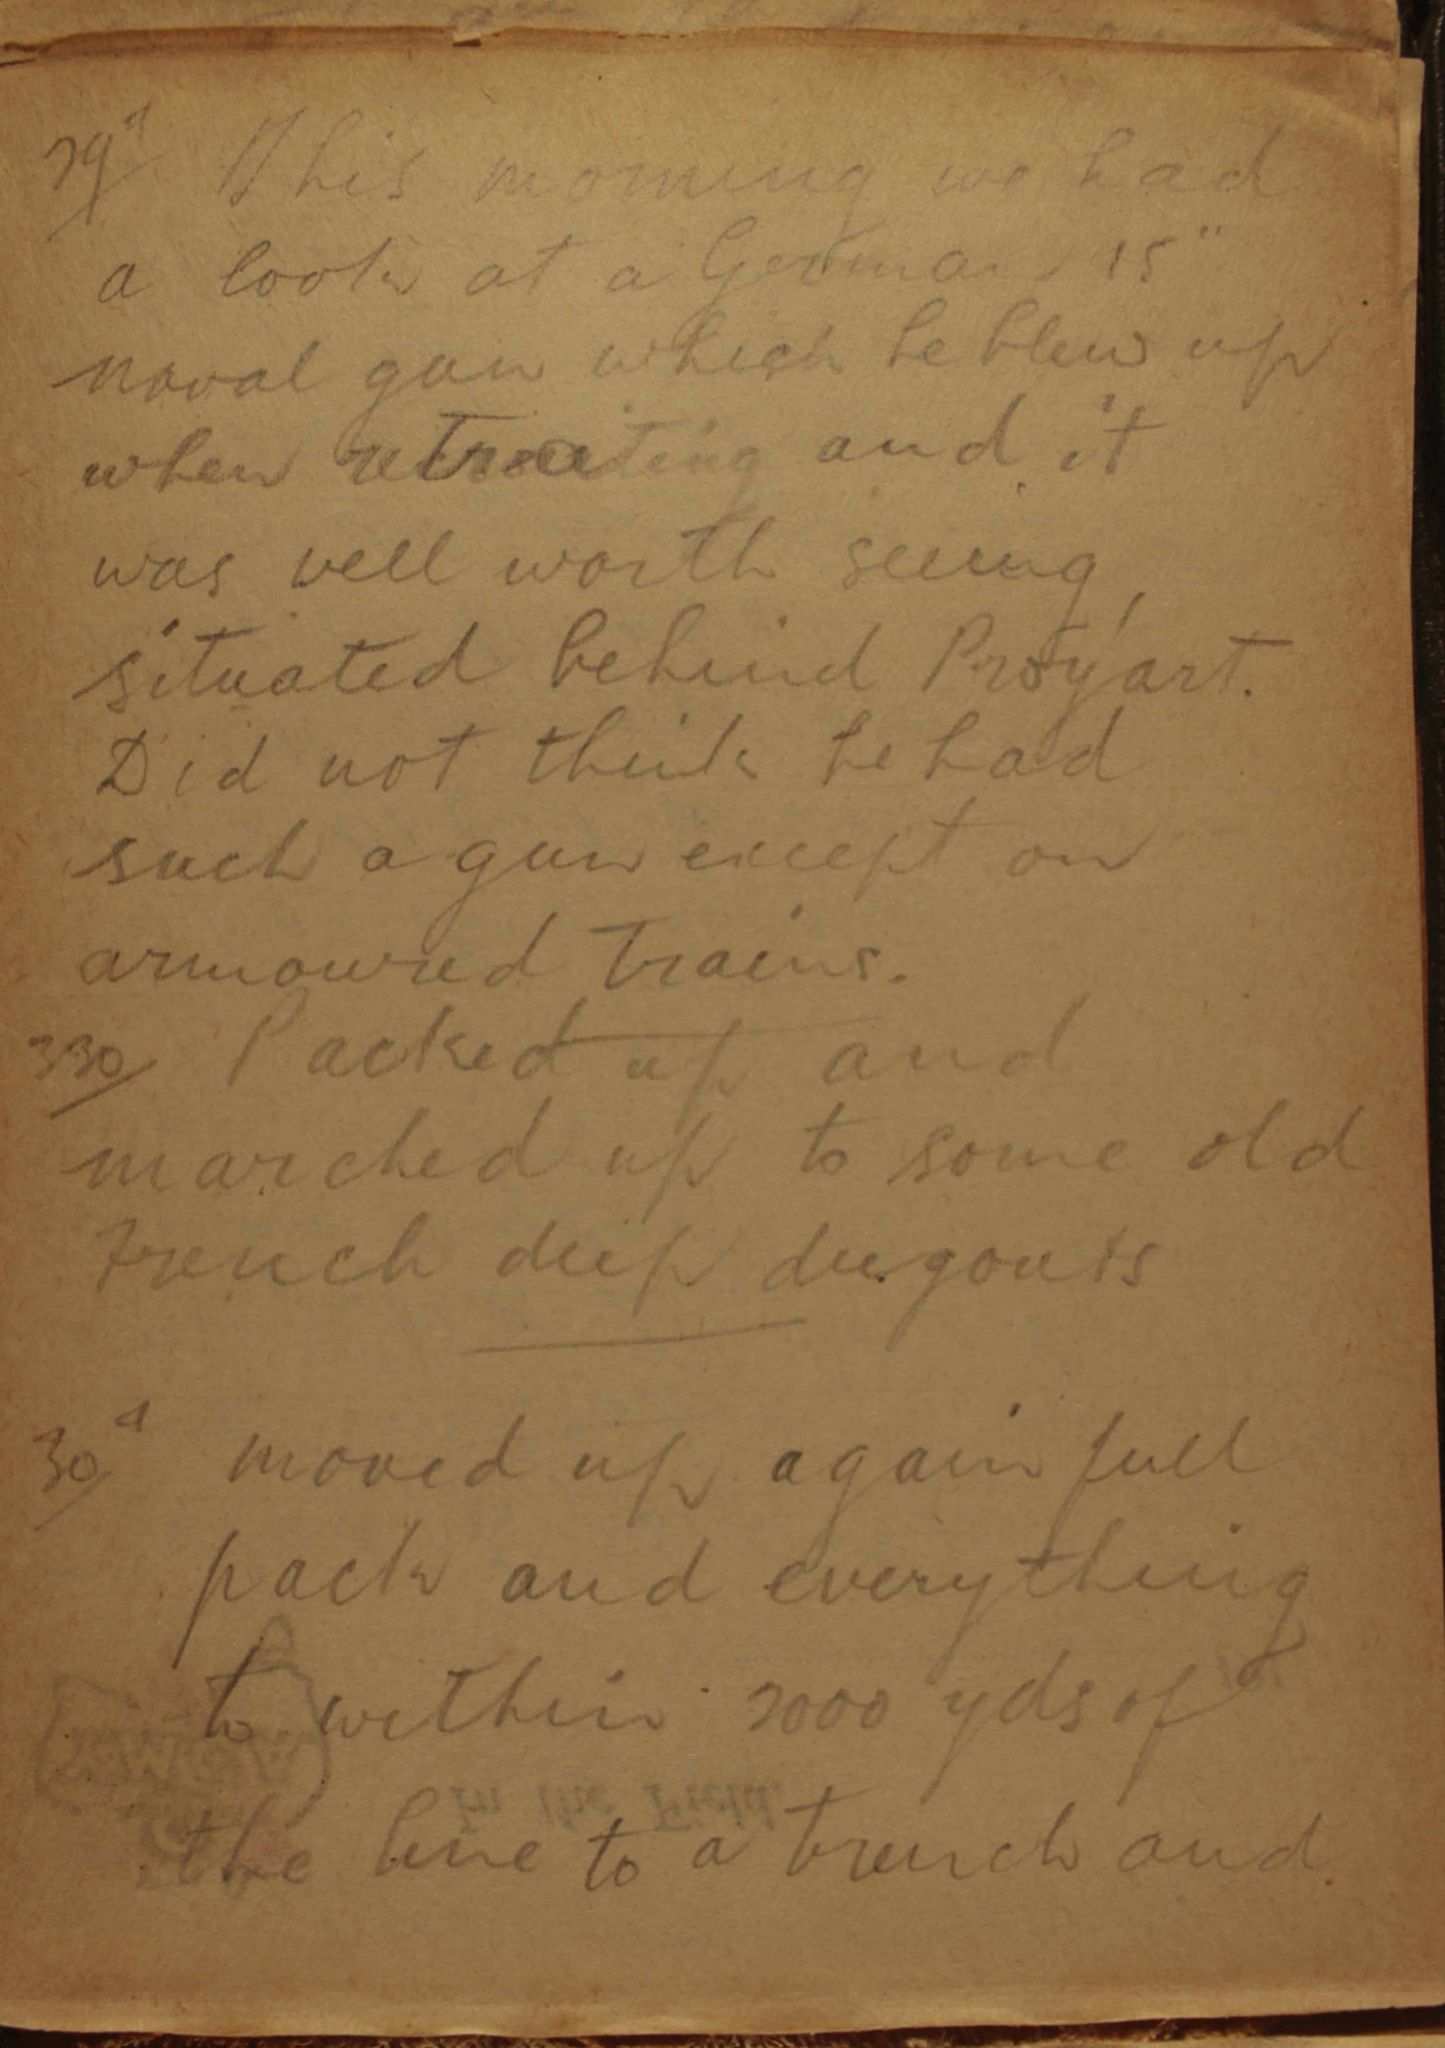 29th This morning we had
a look at a German 15"
naval gun which he blew up
when retreating and it
was well worth seeing,
situated behind Proyart.
Did not think he had
such a gun except on
armoured trains.
330 Packed up and
marched up to some old
French deep dugouts
30th moved up again full
pack and everything
to within 2000 yds of
In the Field.
the line to a trench and